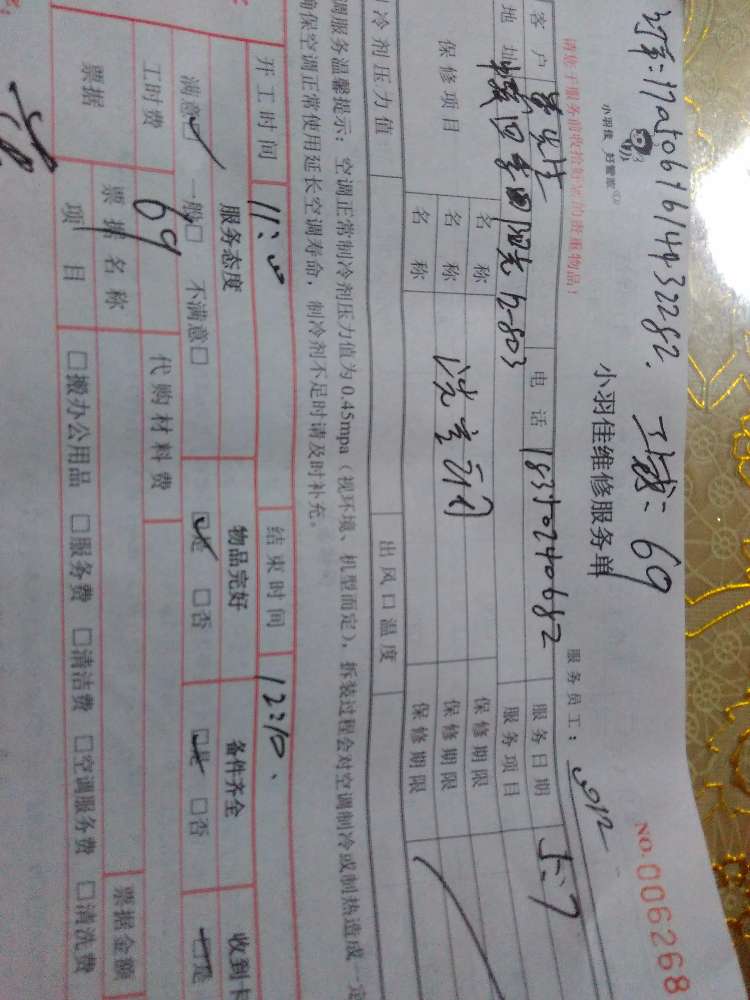 工费：69
NO.006268
小羽佳 好管家
小羽佳维修服务单
请您于服务前收拾好您的贵重物品！
服务员工：
客户 电话 18350240682 服务日期 5.7
地址 2-803 服务项目
保修项目 名称 保修期限
名称 洗空调 保修期限
名称 保修期限
冷剂压力值 出风口温度
调服务温馨提示：空调正常制冷剂压力值为0.45mpa（视环境、机型而定），拆装过程会对空调制冷或制热造成一定
确保空调正常使用延长空调寿命，制冷剂不足时请及时补充。
开工时间 结束时间 12:10
服务态度 物品完好 备件齐全 收到卡
满意☑ 一般□ 不满意□ ☑是 □否 ☑是 □否 ☑是
工时费 69 代购材料费
票据 票据名称 票据金额
项目 □搬办公用品 □服务费 □清洁费 □空调服务费 □清洗费